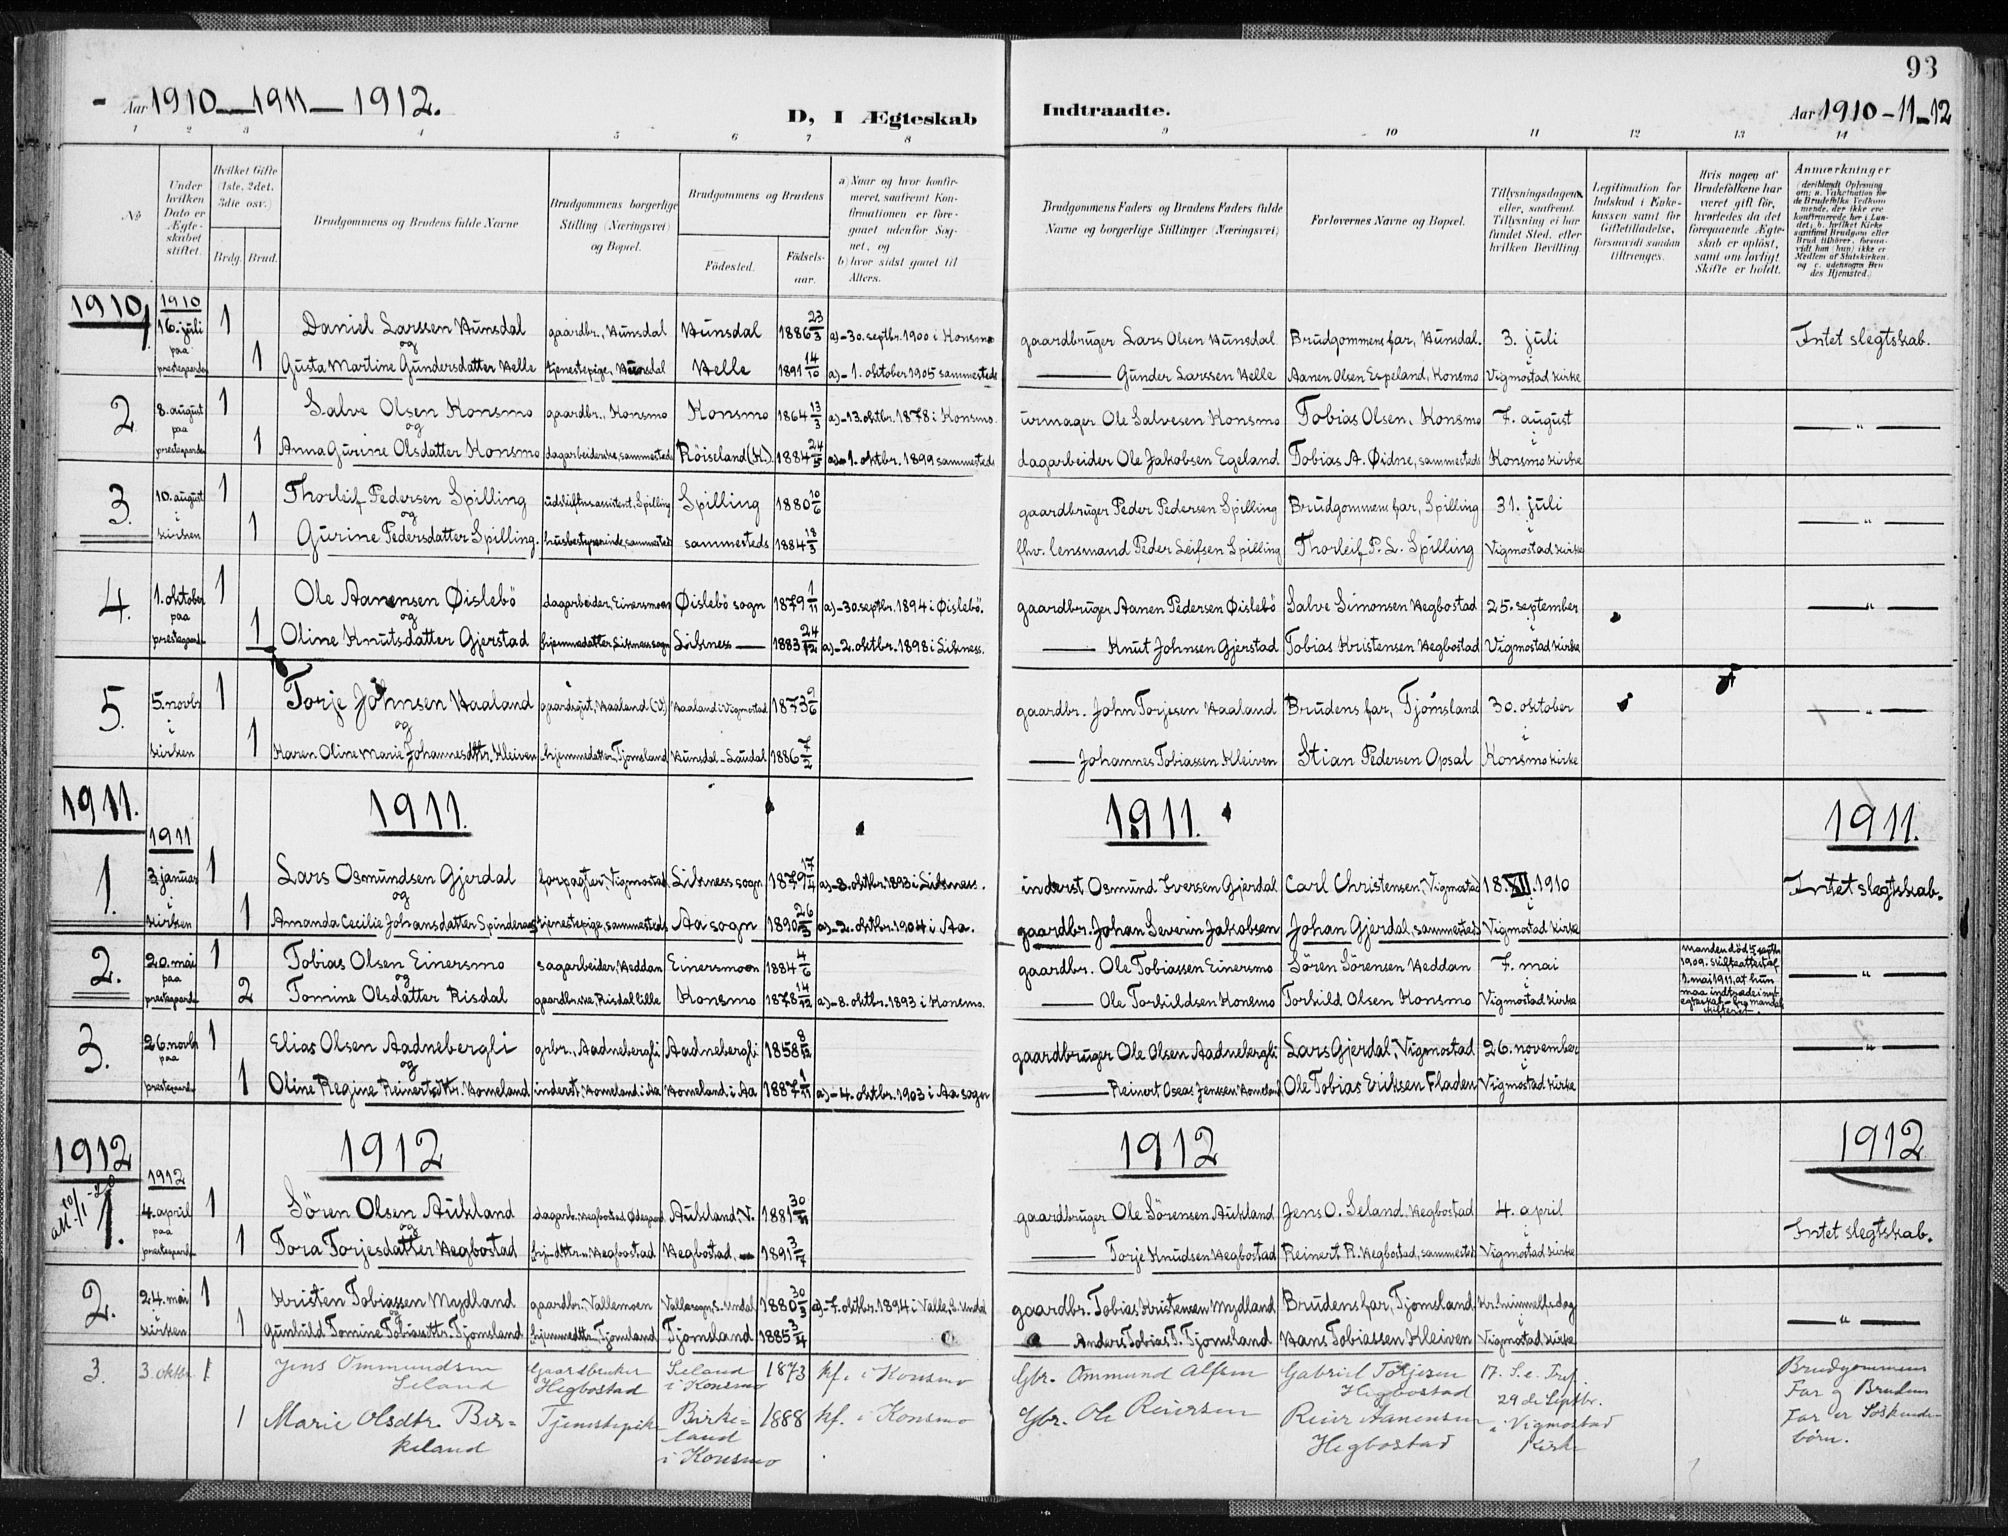 93
Aar 1910 — 1911 — 1912.
D, I Ægteskab
Indtraadte.
Aar 1910 - 11 - 12
1 2 3 4 5 6 7 8
9 10 11 12 13 14
No
Under hvilken Dato er Ægteskabet stiftet.
Hvilket Gifte (1ste, 2det, 3die osv.)
Brdg. Brud.
Brudgommens og Brudens fulde Navne
Brudgommens borgerlige Stilling (Næringsvei) og Bopæl.
Brudgommens og Brudens
Fødested. Fødselsaar.
a) Naar og hvor konfirmeret, saafremt Konfirmationen er foregaaet udenfor Sognet, og
b) hvor sidst gaaet til Alters.
Brudgommens Faders og Brudens Faders fulde Navne og borgerlige Stillinger (Næringsvei)
Forlovernes Navne og Bopæl.
Tillysningsdagene eller, saafremt Tillysning ei har fundet Sted, efter hvilken Bevilling
Legitimation for Indskud i Enkekassen samt for Giftetilladelse, forsaavidt saadan tiltrænges.
Hvis nogen af Brudefolkene har været gift før, hvorledes da det foregaaende Ægteskab er opløst, samt om lovligt Skifte er holdt.
Anmærkninger
1910
1 1910 16. juli paa prestegaarden 1 Daniel Larssen Hunsdal gaardbr., Hunsdal Hunsdal 1886 23/3 a) - 30. septbr. 1900 i Konsmo gaardbruger Lars Olsen Hunsdal Brudgommens far, Hunsdal. 3. juli Intet slegtskab.
og
1 Gusta Martine Gundersdatter Helle tjenestepige, Hunsdal Helle 1891 14/10 a) - 1. oktober 1905 sammesteds — Gunder Larssen Helle Aanen Olsen Espeland, Konsmo i Vigmostad kirke
2 8. august paa prestegaarden 1 Salve Olsen Konsmo gaardbr., Konsmo Konsmo 1864 13/3 a) - 13. oktbr. 1878 i Konsmo. urmager Ole Salvesen Konsmo Tobias Olsen, Konsmo 7. august — " —
og
1 Anna Gurine Olsdatter Konsmo dagarbeiderske, sammesteds Röiseland (K.) 1884 24/5 a) - 1. oktbr. 1899 sammesteds dagarbeider Ole Jakobsen Egeland Tobias A. Øidne, sammesteds Konsmo kirke
3. 10. august i kirken 1 Thorleif Pedersen Spilling udskiftn.assistent, Spilling Spilling 1880 10/6 gaardbruger Peder Pedersen Spilling Brudgommens far, Spilling 31. juli — " —
og
1 Gurine Pedersdatter Spilling. husbestyrerinde, sammesteds sammesteds 1884 18/3 fhv. lensmand Peder Leifsen Spilling Thorleif P. L. Spilling i Vigmostad kirke
4. 1. oktober paa prestegaard. 1 Ole Aanensen Øislebö dagarbeider, Einersmoen Øislebö sogn 1879 1/11 a) - 30. septbr. 1894 i Øislebö. gaardbruger Aanen Pedersen Øislebö Salve Simonsen Hegbostad 25. september — " —
og
1 Oline Knutsdatter Gjerstad hjemmedatter, Liknes sogn Likness — 1883 24/12 a) - 2. oktbr. 1898 i Likness. — Knut Johnsen Gjerstad Tobias Kristensen Hegbostad i Vigmostad kirke
5. 5. novbr. i kirken 1 Torje Johnsen Haaland gaardsgut, Haaland (V) Haaland i Vigmostad 1873 9/6 gaardbr. John Torjesen Haaland Brudens far, Tjömsland 30. oktober — " —
og
1 Karen Oline Marie Johannesdttr. Kleiven hjemmedatter, Tjömsland Hunsdal - Laudal 1886 7/2 — Johannes Tobiassen Kleiven Stian Pedersen Opsal i Konsmo kirke
1911. 1911. 1911. 1911.
1. 1911 3. januar i kirken 1 Lars Osmundsen Gjerdal forpagter, Vigmostad Likness sogn 1879 17/4 a) - 8. oktbr. 1893 i Likness. inderst Osmund Iversen Gjerdal Carl Christensen, Vigmostad 18. XII. 1910 Intet slegtskab.
og
1 Amanda Cecilie Johansdatter Spinderæg tjenestepige, sammesteds Aa sogn 1890 26/3 a) - 2. oktbr. 1904 i Aa. gaardbr. Johan Severin Jakobsen Johan Gjerdal, sammesteds i Vigmostad kirke
2. 20. mai paa prestegaard. 1 Tobias Olsen Einersmo sagarbeider, Heddan Einersmoen 1884 4/6 gaardbr. Ole Tobiassen Einersmo Sören Sörensen Heddan 7. mai manden död 5. septbr. 1909. skifteattest af 1. mai 1911, at hun maa indtræde i nyt egteskab fra mandal skifteret. — " —
og
2 Tomine Olsdatter Risdal gaardbr.ske, Risdal lille Konsmo 1878 14/12 a) - 8. oktbr. 1893 i Konsmo. — Ole Torkildsen Konsmo Torkild Olsen Konsmo i Vigmostad kirke
3. 26. novbr. paa prestegaard. 1 Elias Olsen Aadnebergli grbr., Aadnebergli Aadnebergli 1858 8/12 gaardbruger Ole Olsen Aadnebergli Lars Gjerdal, Vigmostad 26. november — " —
og
1 Oline Regine Reinertsdttr. Homeland inderst, Homeland i Aa Homeland i Aa 1887 1/11 a) - 4. oktbr. 1903 i Aa sogn — Reinert Oseas Jenssen Homeland Ole Tobias Eriksen Fladen i Vigmostad kirke
1912 1912 1912 1912
1. 1912 4. april paa prestegaard. 1 Sören Olsen Aukland dagarb. Hegbostad Ødegaard Aukland, V. 1881 30/11 gaardbruger Ole Sörensen Aukland Jens O. Seland, Hegbostad 4. april Intet slegtskab.
og
1 Tora Torjesdatter Hegbostad hj.dttr. Hegbostad Hegbostad, — 1891 3/7 — Torje Knudsen Hegbostad Reinert R. Hegbostad, sammesteds i Vigmostad kirke
2. 24. mai i kirken 1 Kristen Tobiassen Mydland gaardbr., Vallemoen Valle sogn, S. Undal 1880 30/3 a) - 7. oktbr. 1894 i Valle, S. Undal gaardbr. Tobias Kristensen Mydland Brudens far, Tjomsland Kr. himmelfs.dag — " —
og
1 Gunhild Tomine Tobiasdttr. Tjomsland hjemmedttr., Tjomsland Tjomsland 1885 3/4 — Anders Tobias T. Tjomsland Hans Tobiassen Kleiven Vigmostad kirke
3. 3. oktbr. 1 Jens Ommundsen Seland Gaardbruker Hegbostad Seland i Konsmo 1873 kf. i Konsmo Gbr. Ommund Alfsen Gabriel Torjesen Hegbostad 17. S. e. Tref. 29 de Septbr. i Vigmostad Kirke Brudgommens Far og Brudens Far er Söskendebörn.
1 Marie Olsdtr. Birkeland Tjenestepike Birkeland i Konsmo 1888 kf. i Konsmo Gbr. Ole Reiersen Reier Aanensen Hegbostad